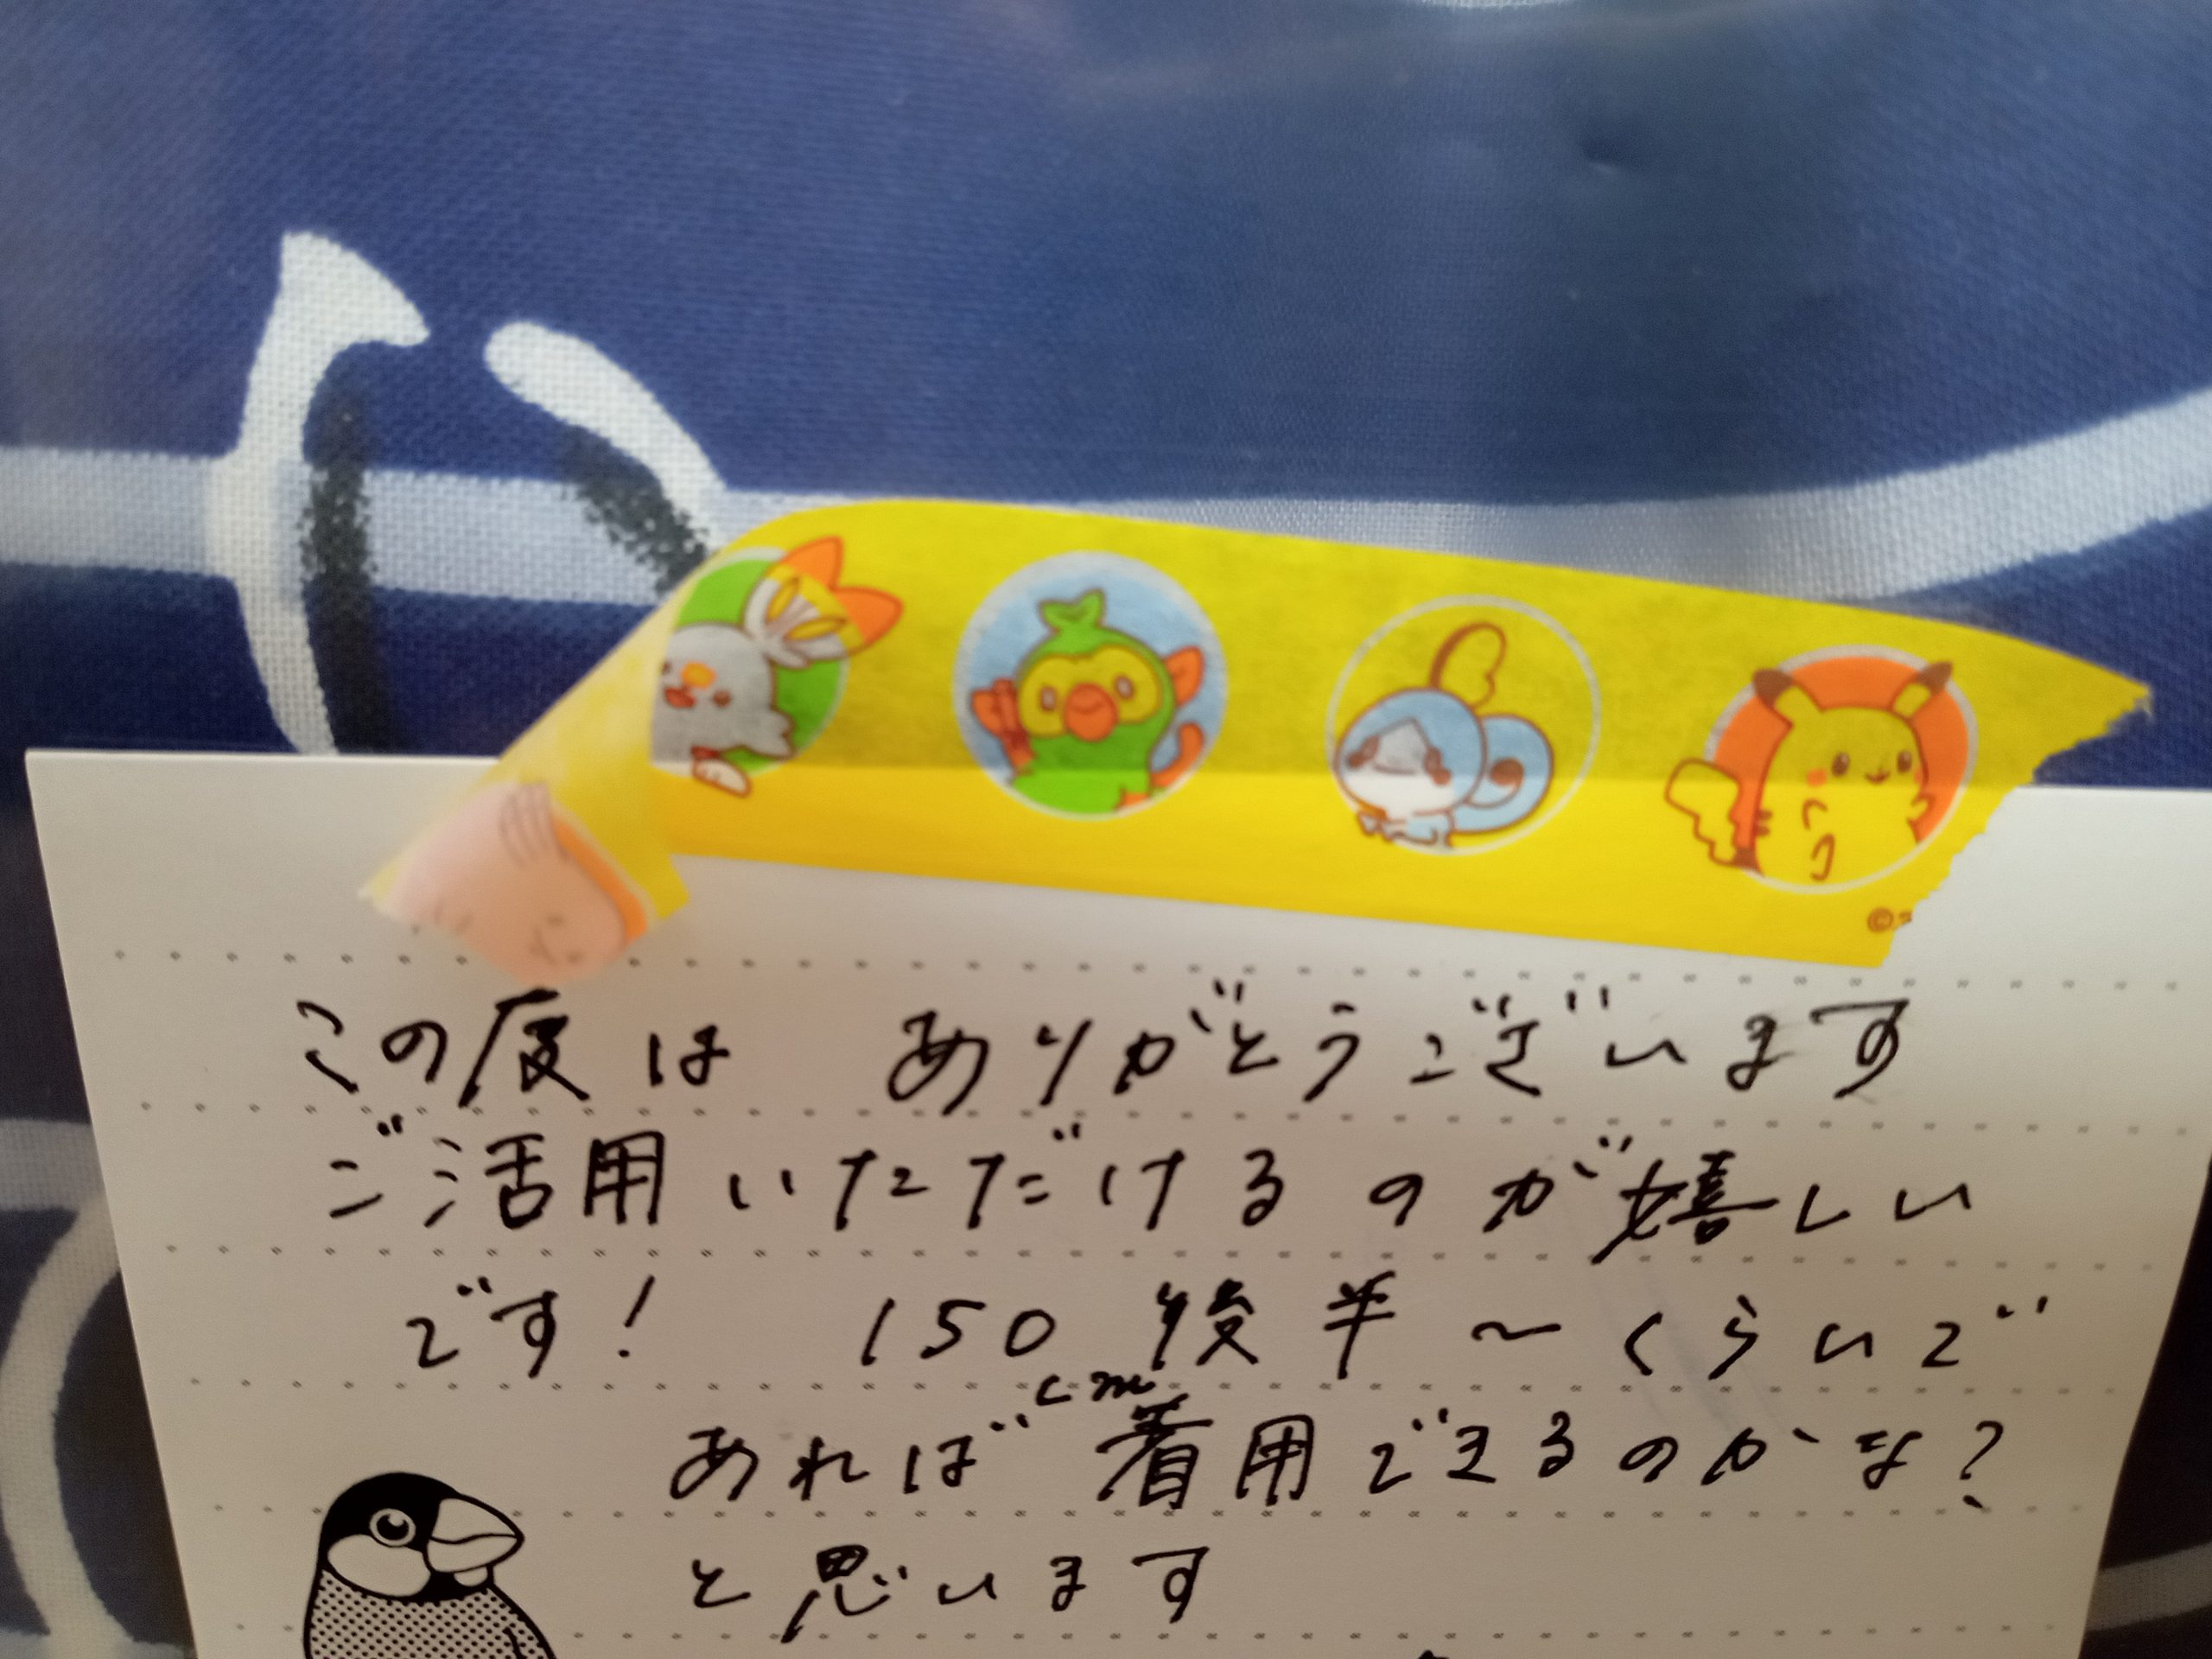 ©
この度は ありがとうございます
ご活用いただけるのが嬉しい
です! 150後半〜くらいで
cm
あれば着用できるのかな?
と思います